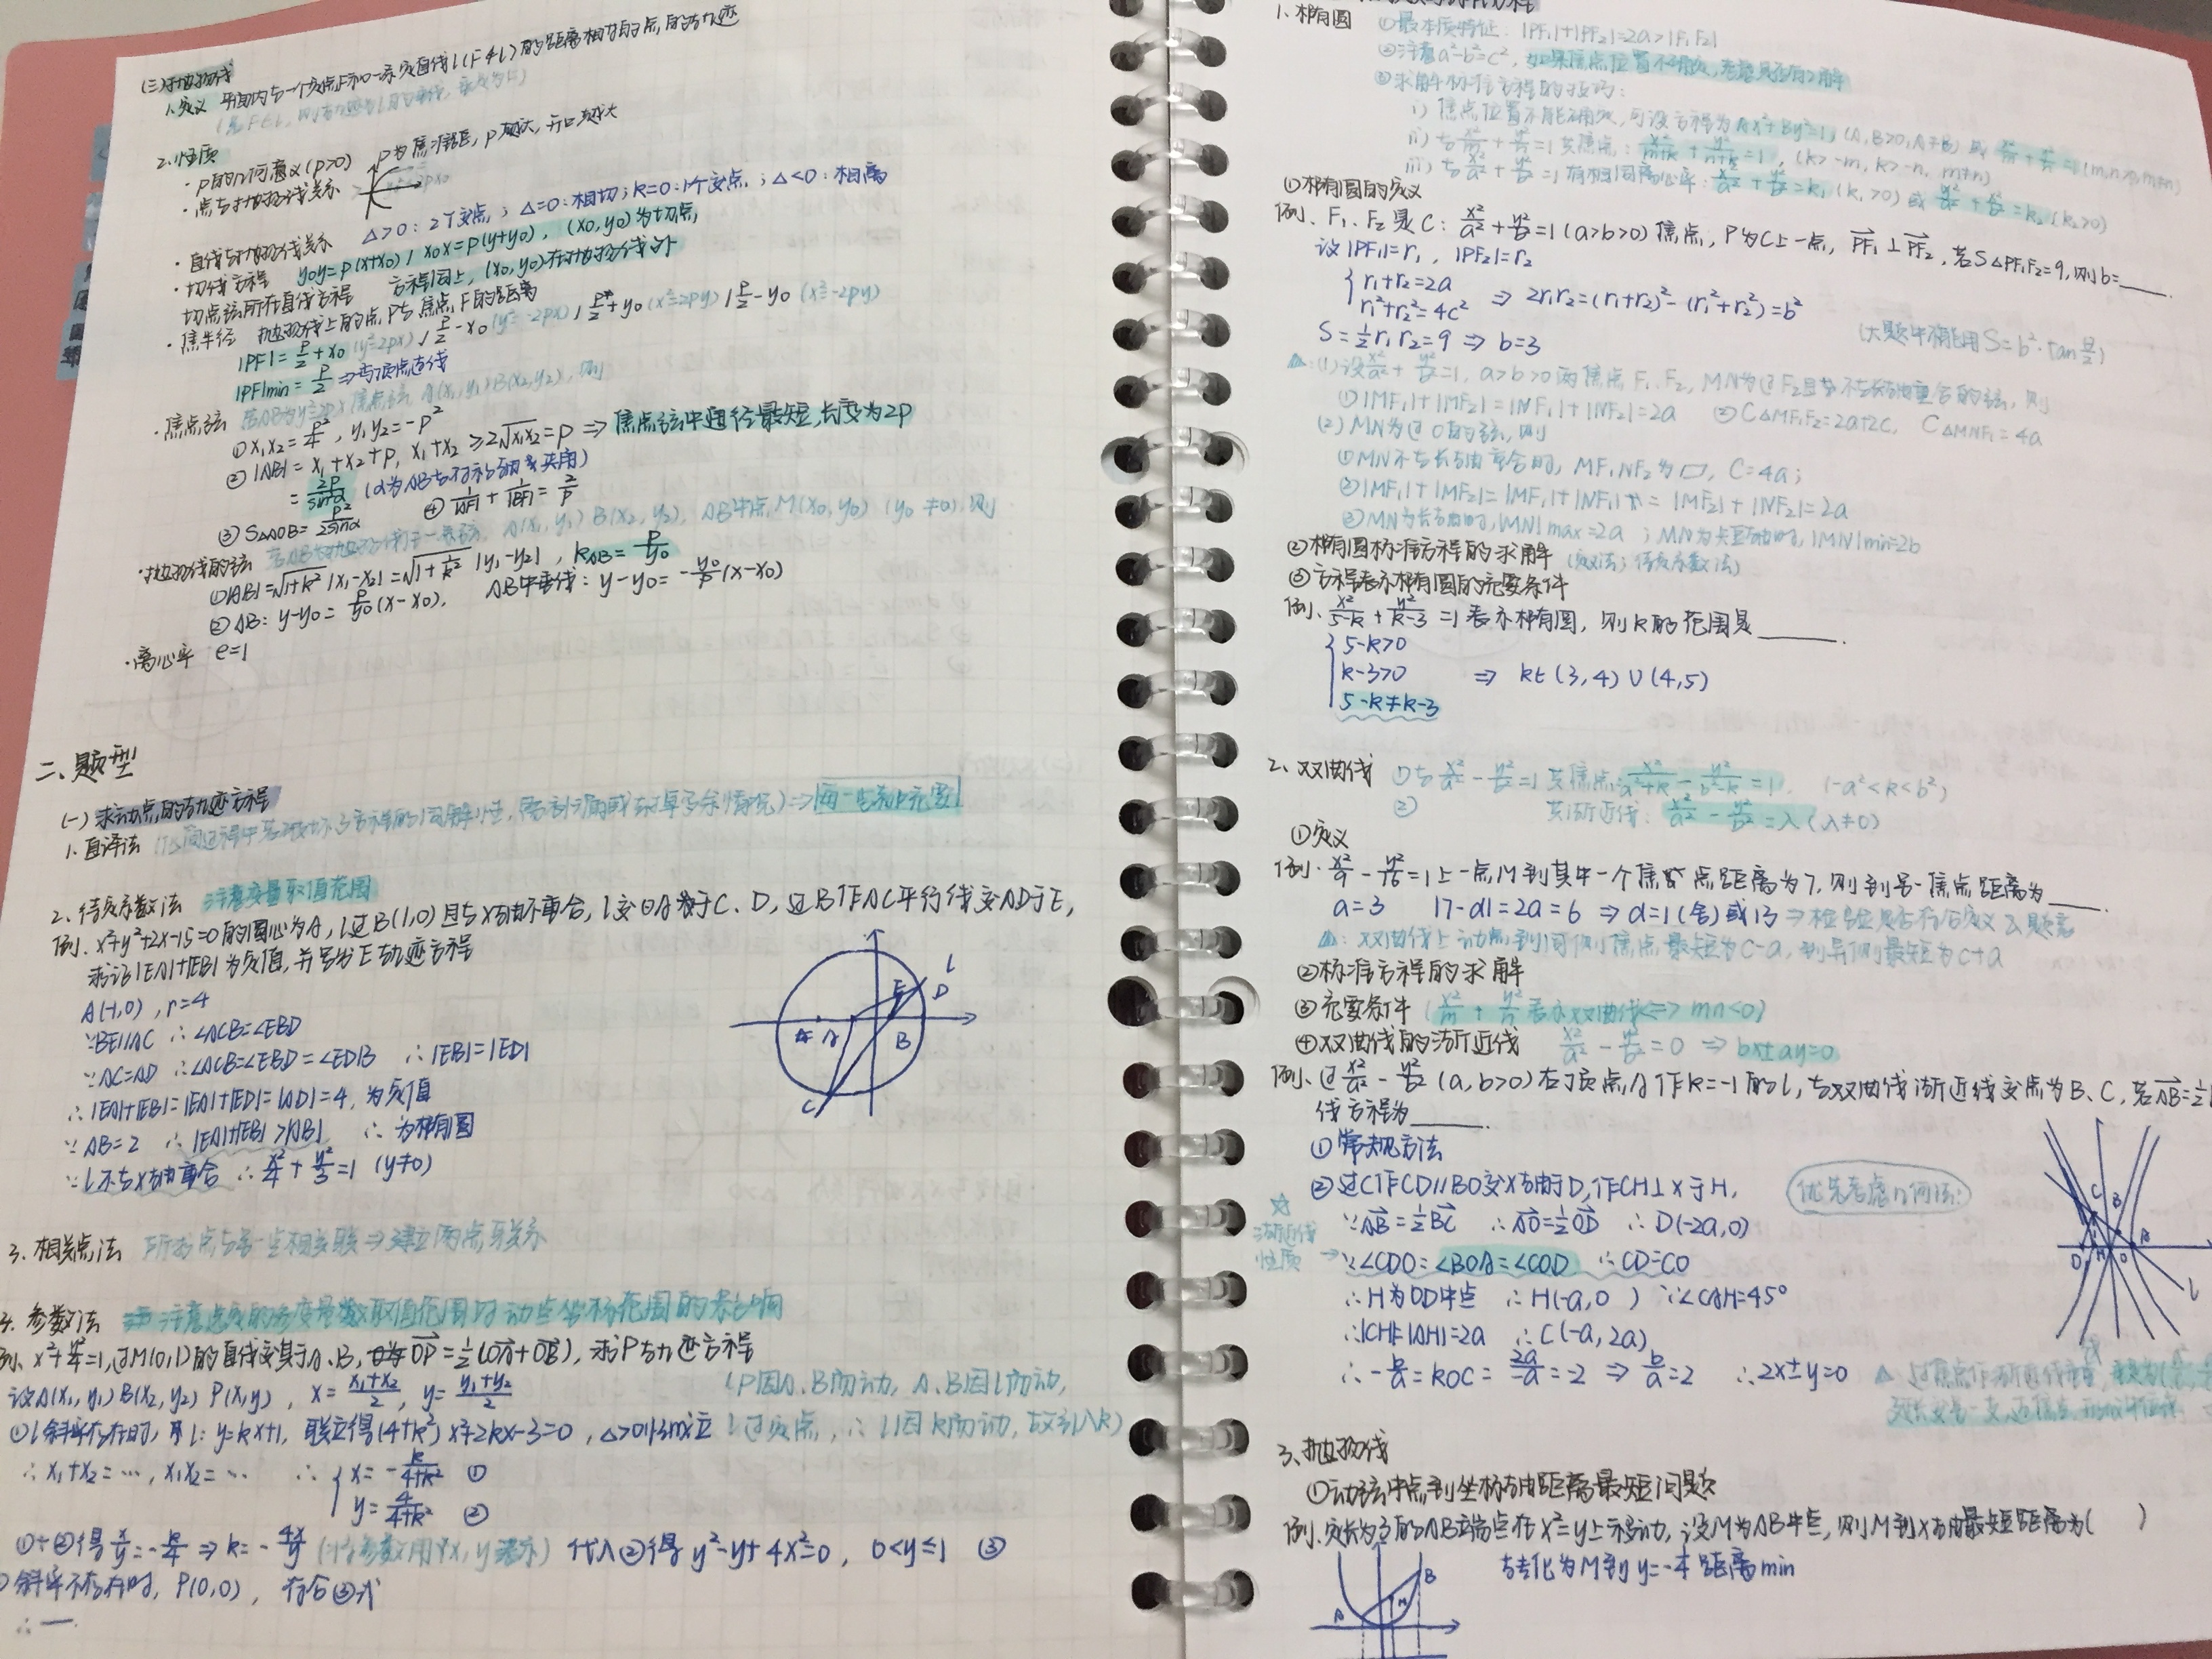 (三)抛物线
1.定义 平面内与一个定点F和一条定直线l(F∉l)的距离相等的点的轨迹
(若F∈l,则轨迹为l的垂线,垂足为F)
2.性质
·p的几何意义(p>0) p为焦准距,p越大,开口越大
·点与抛物线关系
·直线与抛物线关系 Δ>0:2个交点;Δ=0:相切;k=0:1个交点;Δ<0:相离
·切线方程 y₀y=p(x+x₀) / x₀x=p(y+y₀),(x₀,y₀)为切点
切点弦所在直线方程 方程同上,(x₀,y₀)在抛物线外
·焦半径 抛物线上的点P与焦点F的距离
|PF|=p/2+x₀(y²=2px) / p/2-x₀(y²=-2px) / p/2+y₀(x²=2py) / p/2-y₀(x²=-2py)
|PF|min=p/2⇒与顶点连线
·焦点弦 若AB为y²=2px焦点弦,A(x₁,y₁)B(x₂,y₂),则
①x₁x₂=p²/4,y₁y₂=-p²
②|AB|=x₁+x₂+p,x₁+x₂≥2√x₁x₂=p⇒焦点弦中通径最短,长度为2p
=2p/sin²α(α为AB与对称轴夹角)
③S△AOB=p²/2sinα ④1/|AF|+1/|BF|=2/p
·抛物线的弦 若AB为抛物线任一条弦,A(x₁,y₁)B(x₂,y₂),AB中点M(x₀,y₀)(y₀≠0),则
①|AB|=√1+k²|x₁-x₂|=√1+1/k²|y₁-y₂|,kAB=p/y₀
②AB:y-y₀=p/y₀(x-x₀). AB中垂线:y-y₀=-y₀/p(x-x₀)
·离心率 e=1
二、题型
(一)求动点的轨迹方程
1.直译法
2.待定系数法 注意变量取值范围
例.x²+y²+2x-15=0的圆心为A,l过B(1,0)且与x轴不重合,l交⊙A于C、D,过B作AC平行线交AD于E,
求证|EA|+|EB|为定值,并写出E轨迹方程
A(-1,0),r=4
∵BE∥AC ∴∠ACB=∠EBD
∵AC=AD ∴∠ACB=∠EBD=∠EDB ∴|EB|=|ED|
∴|EA|+|EB|=|EA|+|ED|=|AD|=4,为定值
∵AB=2 ∴|EA|+|EB|>|AB| ∴为椭圆
∵l不与x轴重合 ∴x²/4+y²/3=1(y≠0)
l
E D
A B
C
3.相关点法 所求点与另一点相关联⇒建立两点联系
4.参数法 注意选定的参变量取值范围对动点坐标范围的影响
例.x²+y²/4=1,过M(0,1)的直线交其于A、B,OP=1/2(OA+OB),求P轨迹方程
设A(x₁,y₁)B(x₂,y₂)P(x,y),x=x₁+x₂/2,y=y₁+y₂/2
(P因A、B而动,A、B因l而动,
①l斜率存在时,l:y=kx+1,联立得(4+k²)x²+2kx-3=0,Δ>0恒成立
l过定点,∴l因k而动,故引入k)
∴x₁+x₂=…,x₁x₂=… ∴{x=-k/4+k² ①
y=4/4+k² ②
①÷②得x/y=-k/4⇒k=-4x/y(将参数用x,y表示)代入②得y²-y+4x²=0,0<y≤1 ③
②斜率不存在时,P(0,0),符合③式
∴—
1.椭圆 ①最本质特征:|PF₁|+|PF₂|=2a>|F₁F₂|
②注意a²-b²=c²,如果焦点位置不确定,考虑是否有2解
③求解标准方程的技巧:
i)焦点位置不能确定,可设方程为Ax²+By²=1,(A,B>0,A≠B)或x²/m+y²/n=1(m,n>0,m≠n)
ii)与x²/m+y²/n=1共焦点:x²/m+k+y²/n+k=1,(k>-m,k>-n,m≠n)
iii)与x²/a²+y²/b²=1有相同离心率:x²/a²+y²/b²=k₁(k₁>0)或y²/a²+x²/b²=k₂(k₂>0)
①椭圆的定义
例.F₁、F₂是C:x²/a²+y²/b²=1(a>b>0)焦点,P为C上一点,PF₁⊥PF₂,若S△PF₁F₂=9,则b=___.
设|PF₁|=r₁,|PF₂|=r₂
{r₁+r₂=2a
r₁²+r₂²=4c² ⇒2r₁r₂=(r₁+r₂)²-(r₁²+r₂²)=b²
S=1/2r₁r₂=9⇒b=3 (大题中不能用S=b²·tanθ/2)
△:(1)设x²/a²+y²/b²=1,a>b>0两焦点F₁、F₂,MN为过F₂且不与长轴重合的弦,则
①|MF₁|+|MF₂|=|NF₁|+|NF₂|=2a ②C△MF₁F₂=2a+2c,C△MNF₁=4a
(2)MN为过O的弦,则
①MN不与长轴重合时,MF₁NF₂为▱,C=4a;
②|MF₁|+|MF₂|=|MF₁|+|NF₁|=|MF₂|+|NF₂|=2a
③MN为长轴时,|MN|max=2a;MN为短轴时,|MN|min=2b
②椭圆标准方程的求解(定义法;待定系数法)
③方程表示椭圆的充要条件
例.x²/5-k+y²/k-3=1表示椭圆,则k的范围是___.
{5-k>0
k-3>0 ⇒k∈(3,4)∪(4,5)
5-k≠k-3
2.双曲线 ①与x²/a²-y²/b²=1共焦点:x²/a²+k-y²/b²-k=1.(-a²<k<b²)
② 共渐近线:x²/a²-y²/b²=λ(λ≠0)
①定义
例.x²/9-y²/16=1上一点M到其中一个焦点距离为7,则到另一焦点距离为___.
a=3 |7-d|=2a=6⇒d=1(舍)或13⇒检验是否符合定义及题意
△:双曲线上动点到同侧焦点最短为c-a,到异侧最短为c+a
②标准方程的求解
③充要条件(x²/m+y²/n表示双曲线⇔mn<0)
④双曲线的渐近线 x²/a²-y²/b²=0⇒bx±ay=0
例.过x²/a²-y²/b²(a,b>0)右顶点A作k=-1的l,与双曲线渐近线交点为B、C,若AB=1/2
线方程为___.
①常规方法
②过C作CD∥BO交x轴于D,作CH⊥x于H.
优先考虑几何法!
∵AB=1/2BC ∴AO=1/2OD ∴D(-2a,0)
☆渐近线性质→∵∠CDO=∠BOA=∠COD ∴CD=CO
∴H为OD中点 ∴H(-a,0) ∵∠CAH=45°
∴|CH|=|AH|=2a ∴C(-a,2a)
∴-b/a=kOC=2a/-a=-2⇒b/a=2 ∴2x±y=0
C B
D H O A
l
3.抛物线
①动弦中点到坐标轴距离最短问题
例.定长为3的AB端点在x²=y上移动,设M为AB中点,则M到x轴最短距离为( )
转化为M到y=-1/4距离min
B
A M